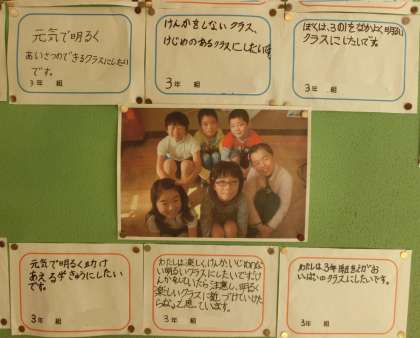 元気で明るく
あいさつのできるクラスにしたい
です。
3年 組
けんかをしないクラス、
けじめのあるクラスにしたいです
3年 組
ぼくは、3の1をなかよく明るい
クラスにしたいです。
3年 組
元気で明るく助け
あえる学きゅうにしたい
です。
3年 組
わたしは、楽しく、けんか、いじめのない
明るいクラスにしたいです。
していたら注意し、明るく
楽しいクラスに近づけていけた
らな、と思っています。
3年 組
わたしは、3年
いっぱいのクラスにしたいです。
3年 組